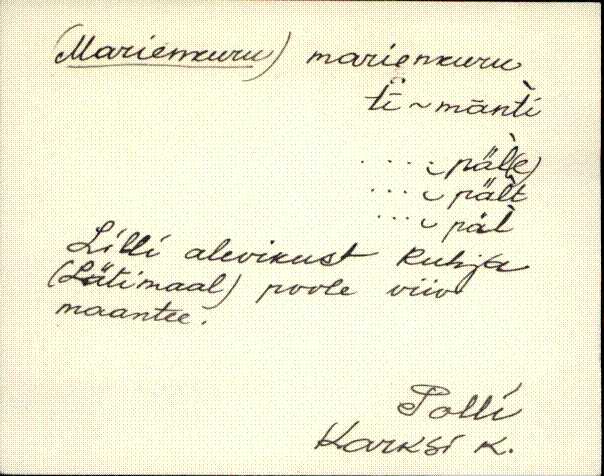 (Marienkuru) marienkuru
tī ~ mànti
....~ pàl(e)
...~ pält
...~ pàl
Lilli alevikust Ruhja
(Lätimaal) poole viiv
maantee.
Polli
Karksi k.